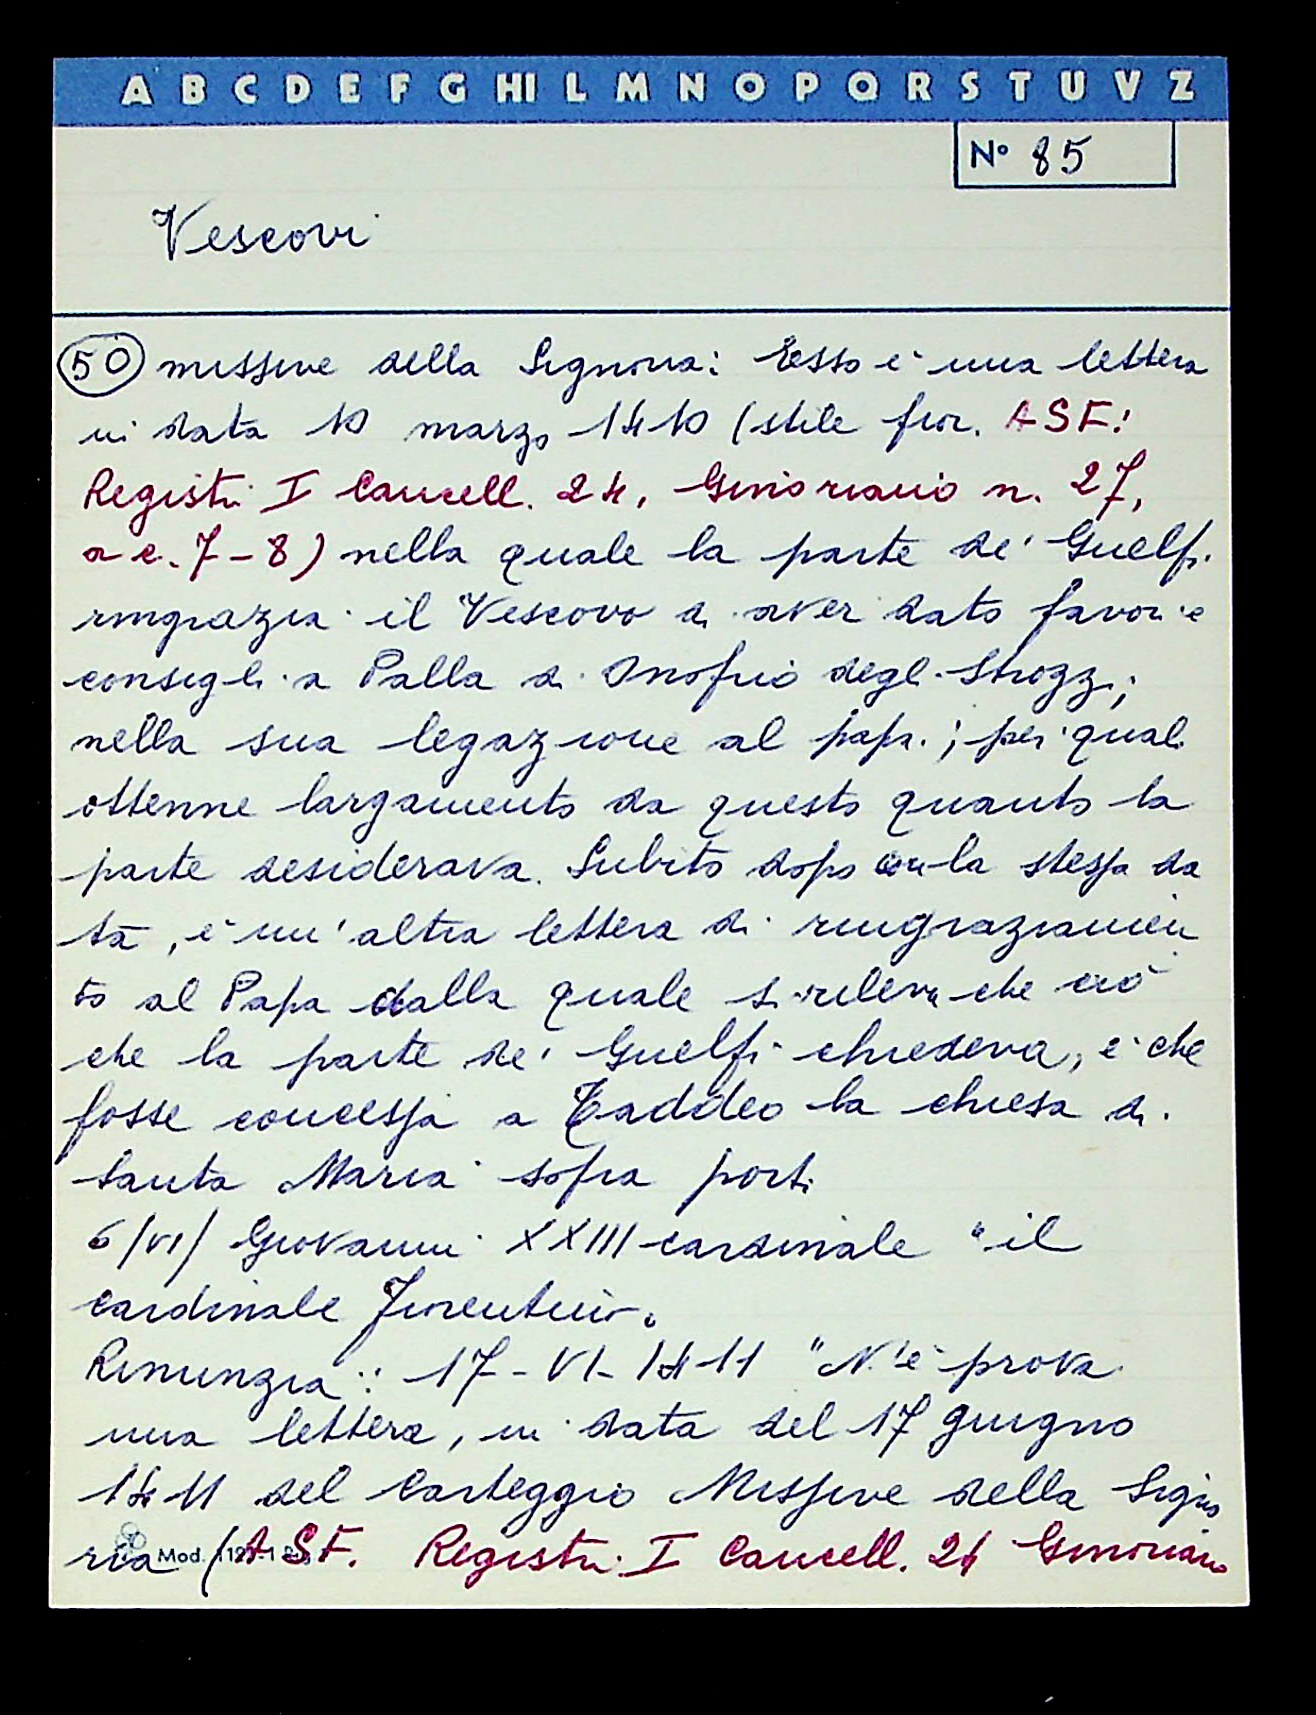 A B C D E F G HI L M N O P Q R S T U V Z
N° 85
Vescovi
50 missive della Signoria: Esso è una lettera
in data 10 marzo 1410 (stile fior. ASF:
Registri I Cancell. 24, Ginoriano n. 27,
a c. 7-8) nella quale la parte de' Guelfi
ringrazia il Vescovo di aver dato favori e
consigli a Palla di Onofrio degli Strozzi;
nella sua legazione al papa; pei quali
ottenne largamento da questo quanto la
parte desiderava. Subito dopo con la stessa da
ta, è un'altra lettera di ringraziamen
to al Papa dalla quale si rileva che ciò
che la parte de' Guelfi chiedeva, è che
fosse concessa a Taddeo la chiesa di
Santa Maria sopra porti
6/VI/ Giovanni XXIII cardinale "il
cardinale Fiorentino.
Rinunzia: 17-VI-1411 "N'è prova
una lettera, in data del 17 giugno
1411 del Carteggio Missive della Signo
ria (A.S.F. Registri I Cancell. 24 Ginoriano
Mod.